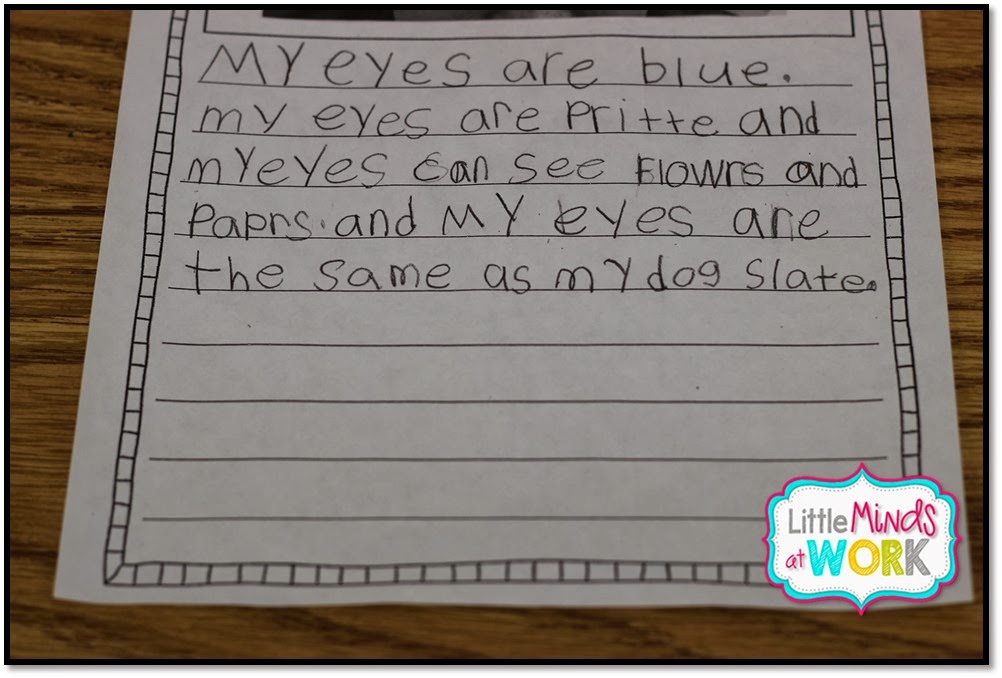 My eyes are blue.
my eyes are Pritte and
myeyes can see Flowrs and
Paprs. and My eyes are
the same as my dog Slate.
Little Minds
at WORK